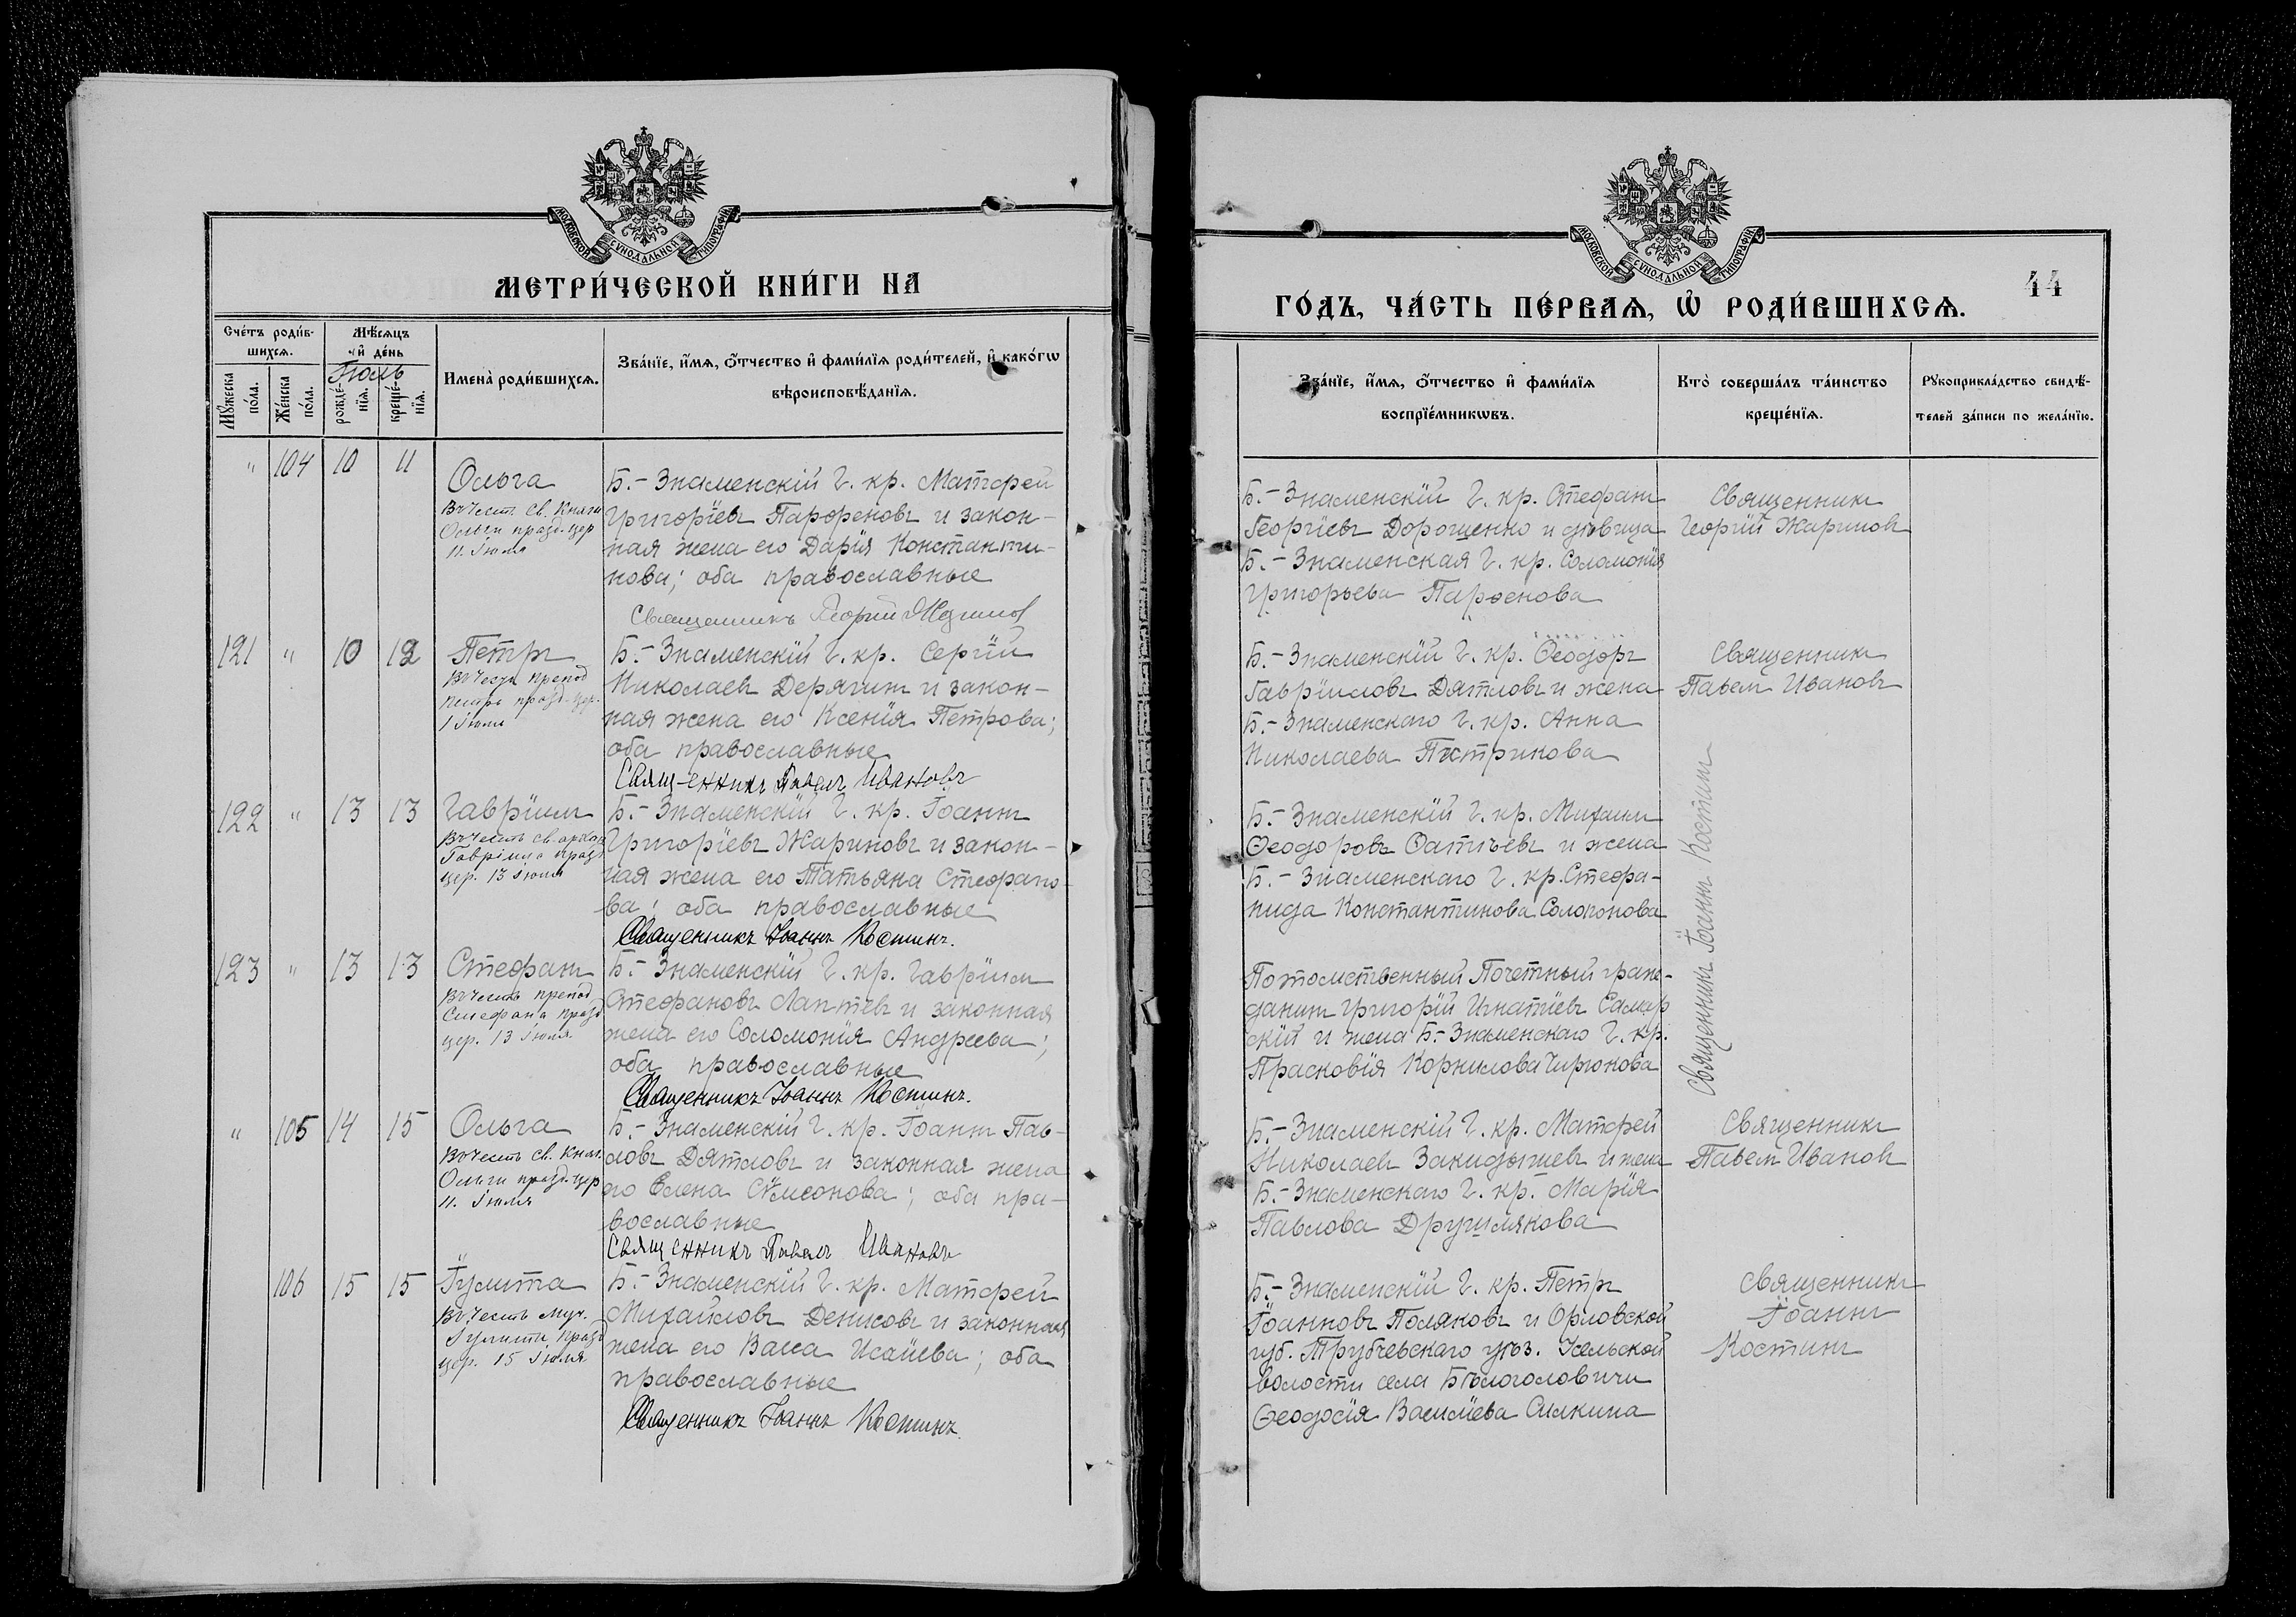 МОСКОВСКОЙ СѴНОДАЛЬНОЙ ТИПОГРАФІИ
МЕТРИ́ЧЕСКОЙ КНИ́ГИ НА
Сче́тъ роди́в-
шихсѧ.
Мѣ́сѧцъ
и҆ де́нь
Іюль
Мꙋ́жеска по́ла.
Же́нска по́ла.
рожде́-
нїѧ.
креще́-
нїѧ.
Имена̀ роди́вшихсѧ.
Зва́нїе, и҆́мѧ, ѻ҆́тчество и҆ фами́лїѧ роди́телей, и҆ како́гѡ
вѣроисповѣ́данїѧ.
" 104 10 11
Ольга
Въ честь Св. Княг.
Ольги празд. цер
11. Іюля
Б.-Знаменскій Г. кр. Матѳей
Григоріевъ Парѳеновъ и закон-
ная жена его Дарія Константи-
нова; оба православные
Священникъ Георгий Жаринов
121 " 10 12
Петръ
Въ честь препод
Петра празд. цер.
1 Іюля
Б.-Знаменскій Г. кр. Сергій
Николаевъ Дерягинъ и закон-
ная жена его Ксенія Петрова;
оба православные
Священникъ Павелъ Ивановъ
122 " 13 13
Гавріилъ
Въ честь Св. архан
Гавріила празд
цер. 13 Іюля
Б.-Знаменскій Г. кр. Іоаннъ
Григоріевъ Жариновъ и закон-
ная жена его Татьяна Стефано-
ва; оба православные
Священникъ Іоаннъ Костинъ.
123 " 13 13
Стефанъ
Въ честь препод
Стефана празд
цер. 13 Іюля
Б.-Знаменскій Г. кр. Гавріилъ
Стефановъ Лаптевъ и законная
жена его Соломонія Андреева;
оба православные
Священникъ Іоаннъ Костинъ.
" 105 14 15
Ольга
Въ честь Св. Княг.
Ольги празд. цер
11. Іюля
Б.-Знаменскій Г. кр. Іоаннъ Пав-
ловъ Дятловъ и законная жена
его Елена Сѵмеонова; оба пра-
вославные
Священникъ Павелъ Ивановъ
106 15 15
Іулитта
Въ честь Муч.
Іулиты празд
цер. 15 Іюля
Б.-Знаменскій Г. кр. Матѳей
Михайловъ Денисовъ и законная
жена его Васса Исаіева; оба
православные
Священникъ Іоаннъ Костинъ.
МОСКОВСКОЙ СѴНОДАЛЬНОЙ ТИПОГРАФІИ
44
ГО́ДЪ, ЧА́СТЬ ПЕ́РВАѦ, Ѡ҆ РОДИ́ВШИХСѦ.
Зва́нїе, и҆́мѧ, ѻ҆́тчество и҆ фами́лїѧ
воспрїе́мникѡвъ.
Кто̀ соверша́лъ та́инство
креще́нїѧ.
Рꙋкоприкла́дство свидѣ́-
телей за́писи по жела́нїю.
Б.-Знаменскій Г. кр. Стефанъ
Георгіевъ Дорошенко и дѣвица
Б.-Знаменская Г. кр. Соломонія
Григорьева Парѳенова
Священникъ
Георгій Жариновъ
Б.-Знаменскій Г. кр. Ѳеодоръ
Гавріиловъ Дятловъ и жена
Б.-Знаменскаго Г. кр. Анна
Николаева Пстрикова
Священникъ
Павелъ Ивановъ
Б.-Знаменскій Г. кр. Михаилъ
Ѳеодоровъ Ѳатѣевъ и жена
Б.-Знаменскаго Г. кр. Стефа-
нида Константинова Солопонова
Священникъ Іоаннъ Костинъ
Потомственный Почетный граж-
данинъ Григорій Игнатіевъ Самар
скій и жена Б.-Знаменскаго Г. кр.
Прасковія Корнилова Чирюкова
Б.-Знаменскій Г. кр. Матѳей
Николаевъ Закидышевъ и жена
Б.-Знаменскаго Г. кр. Марія
Павлова Дружмякова
Священникъ
Павелъ Ивановъ
Б.-Знаменскій Г. кр. Петръ
Іоанновъ Поляковъ и Орловской
губ. Трубчевскаго уѣз. Усельской
волости села Бѣлоголовичи
Ѳеодосія Василіева Силкина
Священникъ
Іоаннъ
Костинъ